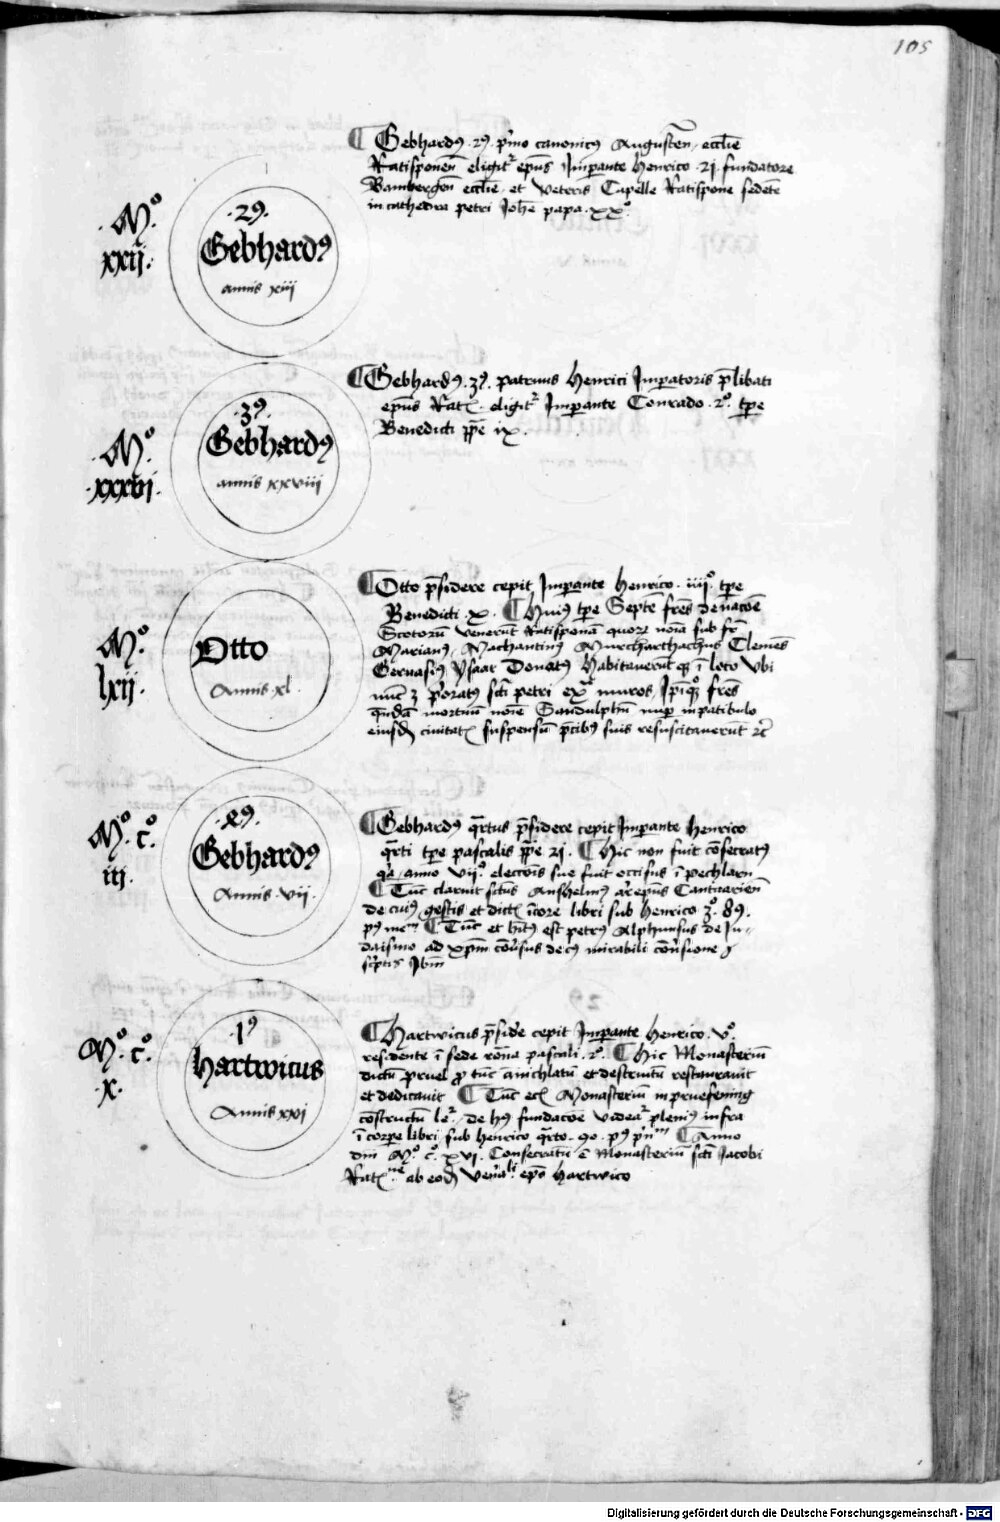 105
.M.º
xxij.
.2ꝰ.
Gebhardꝰ
annis xiij
¶ Gebhardꝰ .2ꝰ. p̄mo canonicꝰ Augusteñ. eccłie
Ratisponeñ eligit᷑ ep̄us Imp̱ante henrico .2i. fundatore
Bambergeñ eccłie. et veteris Capelle Ratispone sedēte
in cathedra petri Joh̄e papa .xxº.
.M.º
.xxxvi.
.3ꝰ.
Gebhardꝰ
annis xxviij
¶ Gebhardꝰ .3ꝰ. patruus henrici Imp̱atoris p̄libati
ep̄us Rat. eligit᷑ Imp̱ante Conrado .2º. tp̄e
Benedicti pp̄e ix.
.M.º
lxij.
Otto
Annis .xl.
¶ Otto p̄sidere cepit Imp̱ante henrico .iiijº. tp̄e
Benedicti .x. ¶ Huiꝰ tp̄e Septē fr̄es de nac̄oe
Scotorū venerūt Ratisponā quorꝝ noīa sub fr̄
Marianꝰ, Machantinꝰ Murcharthachꝰ Clemēs
Gervasiꝰ Ysaac Donatꝰ habitaverūt qꝫ ī loco vbi
nūc ē p̄oratꝰ sc̄i petri ext᷑ muros, Ipiqꝫ fr̄es
q̄ndā mortuū noīe Gandulphū nup̱ in patibulo
eiusdē civitat suspensū p̄cibꝰ suis resuscitaverūt ⁊c̄
.M.º c.º
iij.
.4ꝰ.
Gebhardꝰ
Annis .vij.
¶ Gebhardꝰ q̄rtus p̄sidere cepit Imp̱ante henrico
q̄rti tp̄e pascalis pp̄e 2i. ¶ Hic non fuit cōsecratꝰ
qꝛ anno vijº. eleccōis sue fuit occisus ī pechlarn
¶ Tūc claruit sc̄tus Anshelmꝰ ar̄ep̄us Cantuarieñ
de cuiꝰ gestis et dict īcore libri sub henrico 3º. 8ꝰ.
¶ Tūc et h̄itꝰ est petrꝰ Alphunsus de Ju-
daismo ad xp̄m cōv̄sus de cꝰ mirabili cōv̄sione
sc̄ptis Ibīm
M.º c.º
.x.
.1ꝰ
hartwicus
Annis xxi
¶ Hartwicus p̄side᷑ cepit Imp̱ante henrico .vº.
residente ī sede rōna pascali .2º. ¶ Hic Monasteriū
dictū p̄uel ꝓ tūc anichlatū et destructū restauravit
et dedicavit ¶ Tūc ecī Monasteriū in pruefening
cōstructū le᷑. de hꝰ fundac̄oe videat᷑ plenius infra
ī corp̱e libri sub henrico q̄rto. 4º. pꝰ p̄n̄ ¶ Anno
dn̄i M.º c.º xvi. Consecratū ē Monasteriū sc̄i Jacobi
Rat. ab eodē ven̄ali ep̄o hartwico
Digitalisierung gefördert durch die Deutsche Forschungsgemeinschaft - DFG